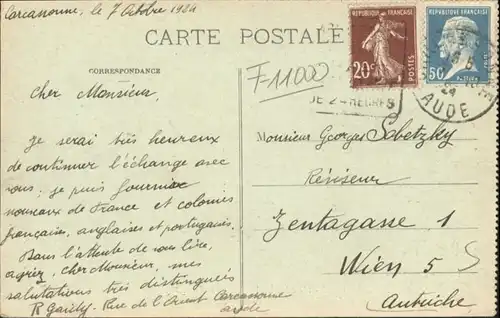 Carcassonne, le 7 Octobre 1924
CARTE POSTALE
RÉPUBLIQUE FRANÇAISE
20c
POSTES
RÉPUBLIQUE FRANÇAISE
50c
AUDE
24
F-11000
DE 2-4 HEURES
CORRESPONDANCE
Cher Monsieur,
Je serai très heureux
de continuer l'échange avec
vous : je puis fournir
nouveaux de France et colonies
françaises, anglaises et portugaises.
Dans l'attente de vous lire,
agréez, cher Monsieur, mes
salutations très distinguées
R Rue de l'Orient Carcassonne
Aude
Monsieur Georges Sobetzky
Réviseur
Zentagasse 1
Wien 5
Autriche